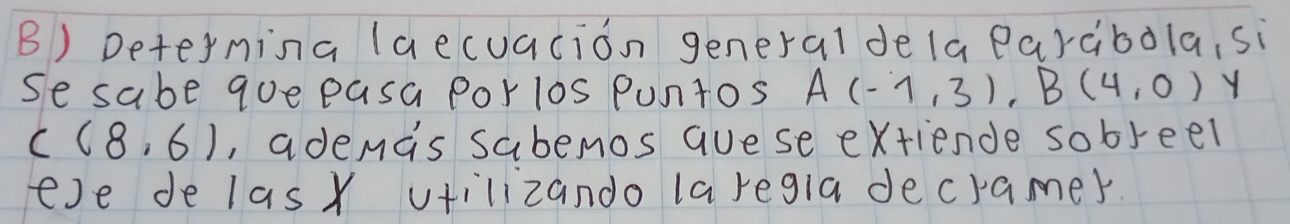 B) Determina la ecuación general de la Parábola, si
se sabe que pasa por los puntos A (-1,3), B(4,0) y
C (8,6), además sabemos que se extiende sobre el
eje de las X utilizando la regla de cramer.